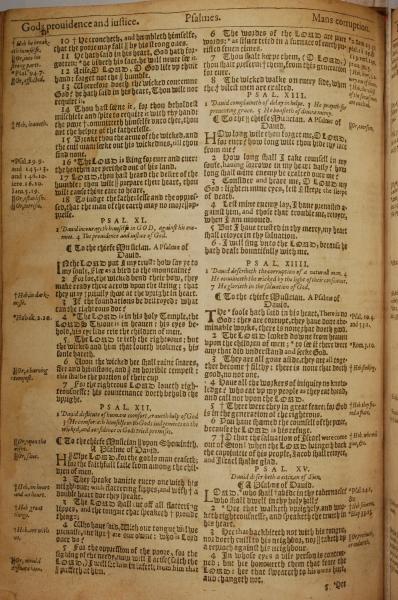 Gods prouidence and iustice.
Psalmes.
Mans corruption.
10 † He croucheth, and humbleth himselfe,
that the poore may fall by his strong ones.
11 He hath said in his heart, God hath for-
gotten: he hideth his face, he will neuer see it.
12 Arise, O LORD, O God lift vp thine
hand: forget not the humble.
13 Wherefore doeth the wicked contemne
God? he hath said in his heart, Thou wilt not
require it.
14 Thou hast seene it, for thou beholdest
mischiefe and spite to requite it with thy hand:
the poore committeth himselfe vnto thee, thou
art the helper of the fatherlesse.
15 Breake thou the arme of the wicked, and
the euill man: seeke out his wickednes, till thou
find none.
16 The LORD is King for euer and euer:
the heathen are perished out of his land.
17 LORD, thou hast heard the desire of the
humble: thou wilt prepare their heart, thou
wilt cause thine eare to heare.
18 To iudge the fatherlesse and the oppres-
sed, that the man of the earth may no more op-
presse.
PSAL. XI.
1 Dauid encourageth himselfe in God, against his ene-
mies. 4 The prouidence and iustice of God.
¶ To the chiefe Musician. A Psalme of
Dauid.
IN the LORD put I my trust: how say ye to
my soule, Flee as a bird to your mountaine?
2 For loe, the wicked bend their bow, they
make ready their arrow vpon the string: that
they may priuily shoot at the vpright in heart.
3 If the foundations be destroyed: what
can the righteous doe?
4 The LORD is in his holy Temple, the
LORDS Throne is in heauen: his eyes be-
hold, his eye lids trie the children of men.
5 The LORD trieth the righteous: but
the wicked and him that loueth violence, his
soule hateth.
6 Vpon the wicked hee shall raine snares,
fire and brimstone, and an horrible tempest:
this shalbe the portion of their cup.
7 For the righteous LORD loueth righ-
teousnesse: his countenance doeth behold the
vpright.
PSAL. XII.
1 Dauid destitute of humane comfort, craueth helpe of God.
¶ To the chiefe Musician vpon Sheminith.
A Psalme of Dauid.
HElpe LORD, for the godly man ceaseth;
for the faithfull faile from among the chil-
dren of men.
2 They speake vanitie euery one with his
neighbour: with flattering lippes, and with † a
double heart doe they speake.
3 The LORD shall cut off all flattering
lippes, and the tongue that speaketh † proud
things.
4 Who haue said, With our tongue wil we
preuaile, our lips † are our owne: who is Lord
ouer vs?
5 For the oppression of the poore, for the
sighing of the needy, now will I arise (saith the
LORD,) I will set him in safety, from him that
puffeth at him.
6 The wordes of the LORD are pure
words: as siluer tried in a furnace of earth pu-
rified seuen times.
7 Thou shalt keepe them, (O LORD,)
thou shalt preserue † them, from this generation
for euer.
8 The wicked walke on euery side, when
the † vilest men are exalted.
PSAL. XIII.
1 Dauid complaineth of delay in helpe. 3 He prayeth for
preuenting grace.
¶ To the chiefe Musician. A Psalme of
Dauid.
HOw long wilt thou forget me (O LORD)
for euer? how long wilt thou hide thy face
from me?
2 How long shall I take counsell in my
soule, hauing sorrow in my heart daily? how
long shall mine enemy be exalted ouer me?
3 Consider and heare me, O LORD my
God: lighten mine eyes, lest I sleepe the sleepe
of death.
4 Lest mine enemy say, I haue preuailed a-
gainst him, and those that trouble me, reioyce,
when I am mooued.
5 But I haue trusted in thy mercy, my heart
shall reioyce in thy saluation.
6 I will sing vnto the LORD, because he
hath dealt bountifully with me.
PSAL. XIIII.
1 Dauid describeth the corruption of a naturall man. 4
He conuinceth the wicked by the light of their conscience.
7 He glorieth in the saluation of God.
¶ To the chiefe Musician. A Psalme of
Dauid.
THe foole hath said in his heart, There is no
God: they are corrupt, they haue done abo-
minable works, there is none that doeth good.
2 The LORD looked downe from heauen
vpon the children of men; to see if there were
any that did vnderstand and seeke God.
3 They are all gone aside, they are all to-
gether become † filthy: there is none that doeth
good, no not one.
4 Haue all the workers of iniquity no know-
ledge? who eat vp my people as they eat bread,
and call not vpon the LORD.
5 There were they in great feare: for God
is in the generation of the righteous.
6 You haue shamed the counsell of the poore,
because the LORD is his refuge.
7 † O that the saluation of Israel were come
out of Sion! when the LORD bringeth backe
the captiuitie of his people, Iacob shall reioyce,
and Israel shalbe glad.
PSAL. XV.
Dauid describeth a citizen of Sion.
¶ A Psalme of Dauid.
LORD, who shall † abide in thy tabernacle?
who shall dwell in thy holy hill?
2 He that walketh vprightly, and wor-
keth righteousnesse, and speaketh the trueth in
his heart.
3 Hee that backbiteth not with his tongue,
nor doeth euill to his neighbor, nor taketh vp
a reproach against his neighbour.
4 In whose eyes a vile person is contem-
ned; but hee honoureth them that feare the
LORD: hee that sweareth to his owne hurt,
and changeth not.
5 Hee